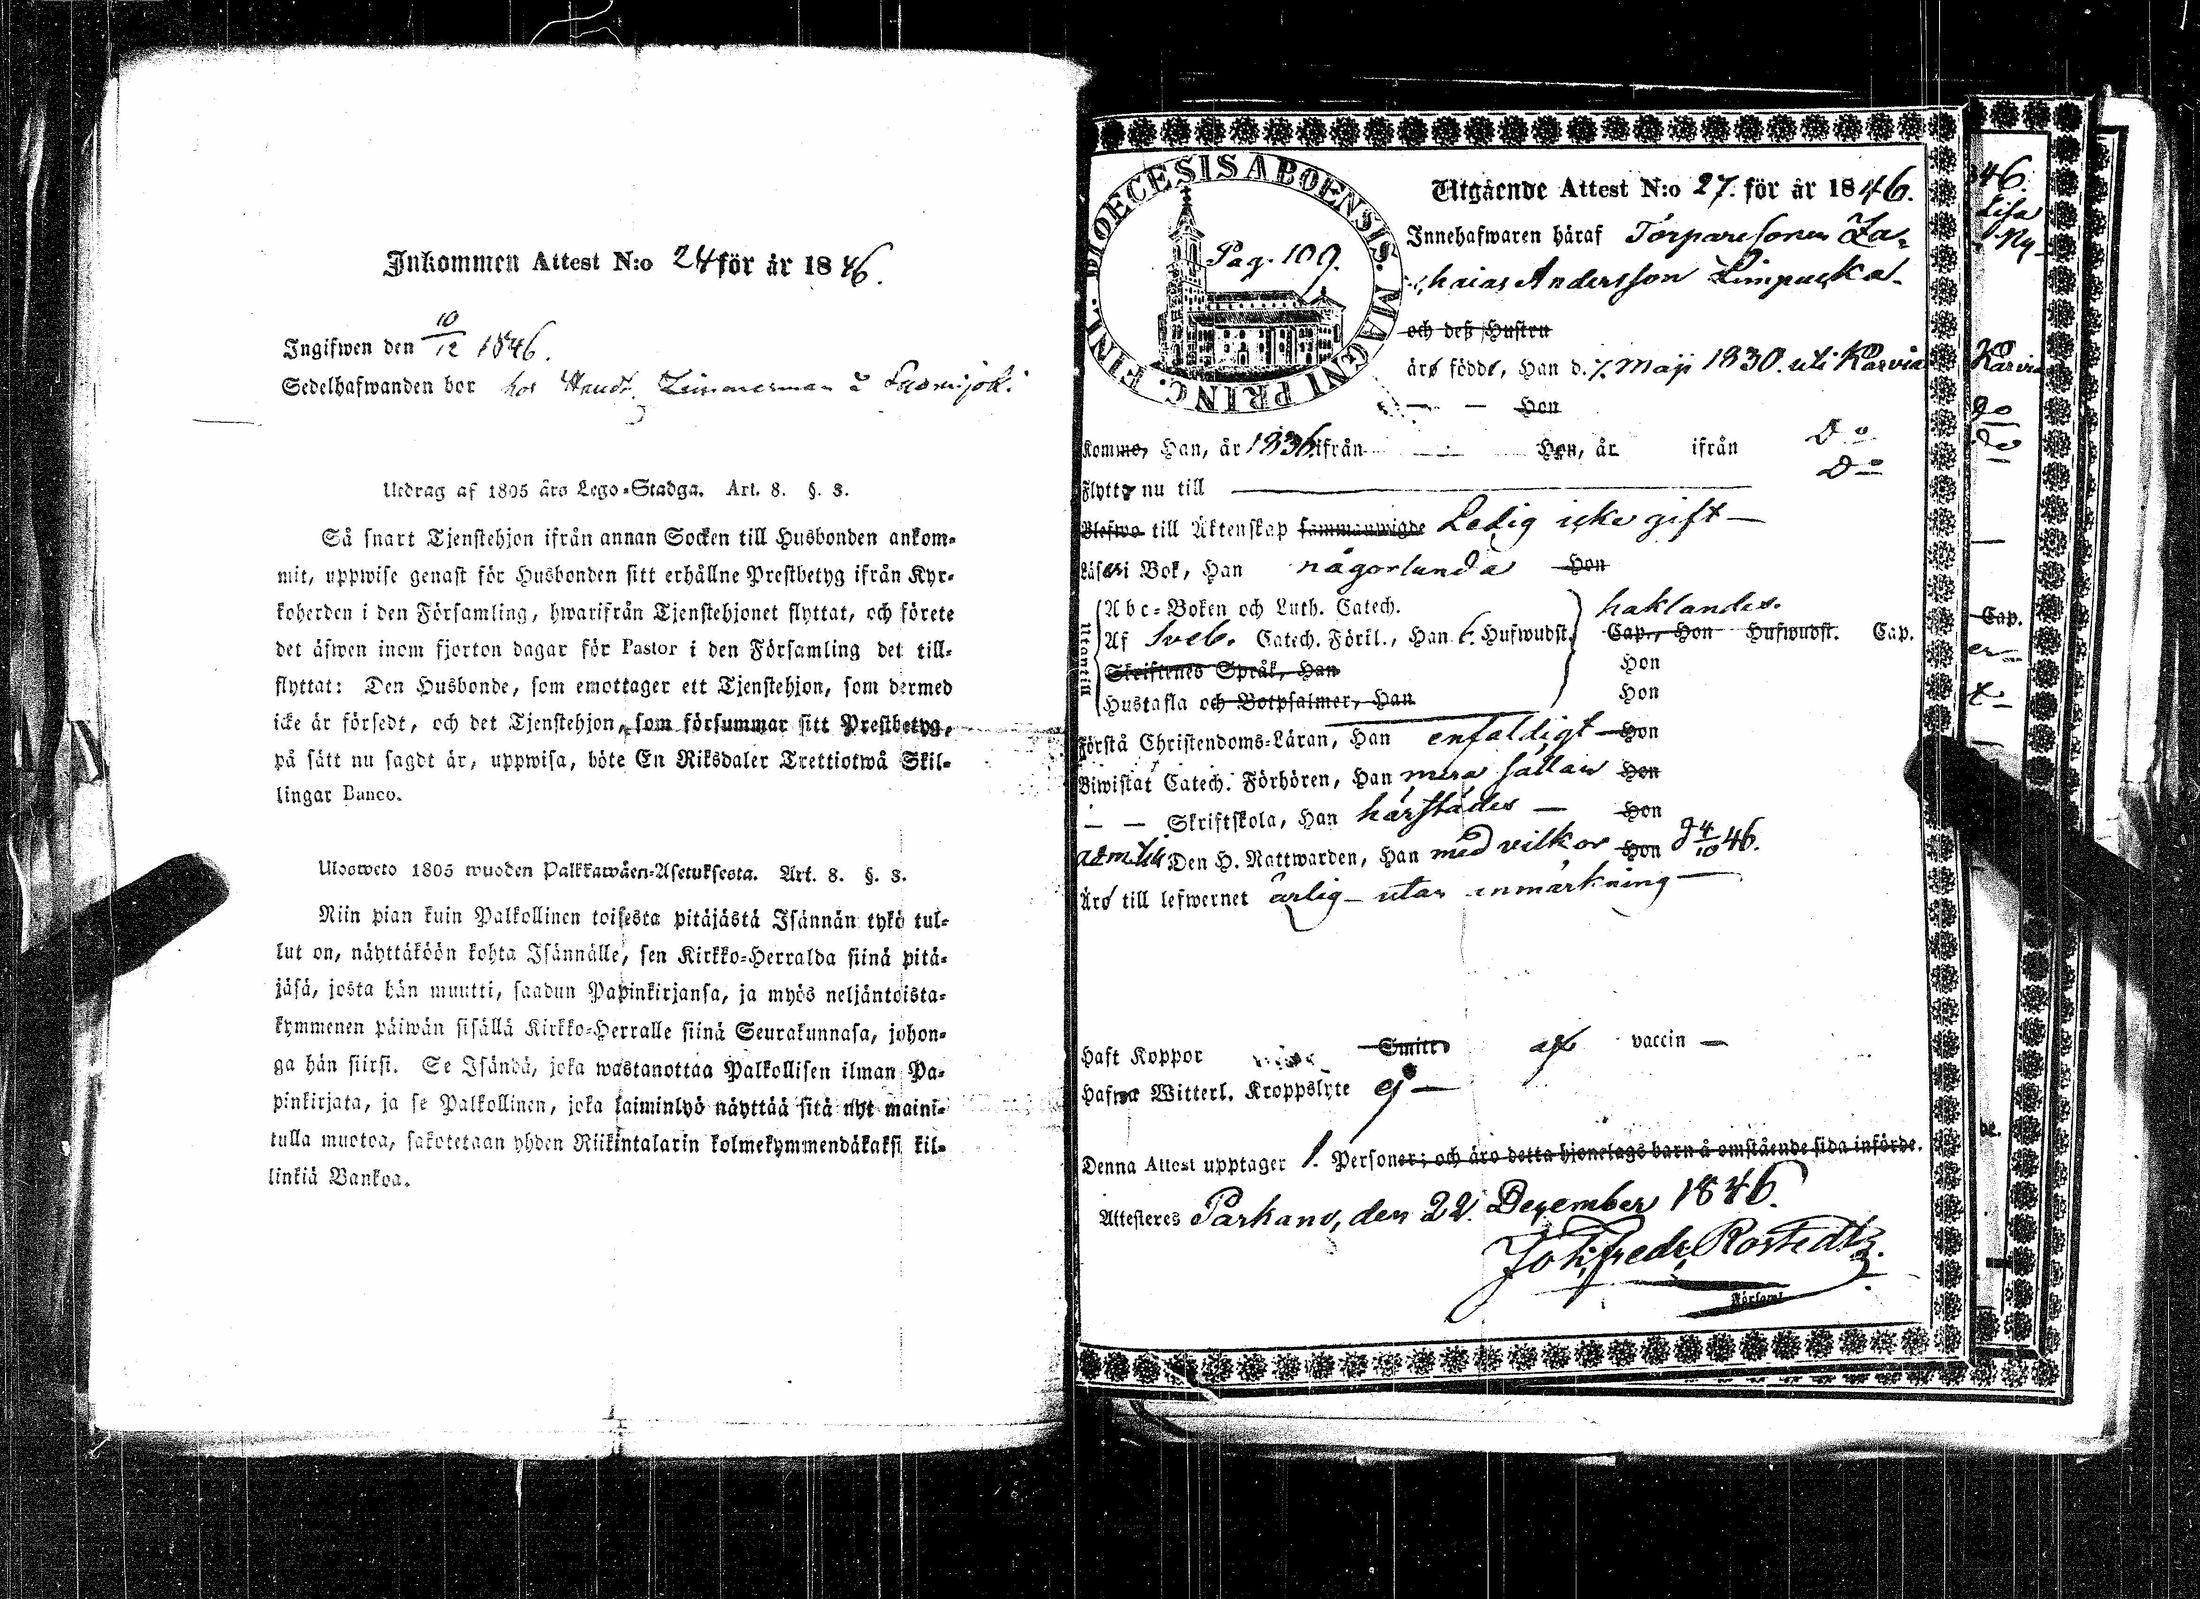 Inkommen Attest N:o 24 för år 1846.
Ingifwen den 10/12 1846.
Sedelhafwanden bor hos Handl. Zimmerman å
Utdrag af 1805 års Lego-Stadga. Art. 8. §. 3.
Så snart Tjenstehjon ifrån annan Socken till Husbonden ankom-
mit, uppwise genast för Husbonden sitt erhållne Prestbetyg ifrån Kyr-
koherden i den Församling, hwarifrån Tjenstehjonet flyttat, och förete
det äfwen inom fjorton dagar för Pastor i den Församling det till-
flyttat: Den Husbonde, som emottager ett Tjenstehjon, som dermed
icke är försedt, och det Tjenstehjon, som försummar sitt Prestbetyg,
på sätt nu sagdt är, uppwisa, böte En Riksdaler Trettiotwå Skil-
lingar Banco.
Ulosweto 1805 wuoden Palkkawäen-Asetuksesta. Art. 8. §. 3.
Niin pian kuin Palkollinen toisesta pitäjästä Isännän tykö tul-
lut on, näyttäköön kohta Isännälle, sen Kirkko-Herralda siinä pitä-
jäsä, josta hän muutti, saadun Papinkirjansa, ja myös neljäntoista-
kymmenen päiwän sisällä Kirkko-Herralle siinä Seurakunnasa, johon-
ga hän siirsi. Se Isändä, joka wastanottaa Palkollisen ilman Pa-
pinkirjata, ja se Palkollinen, joka laiminlyö näyttää sitä nyt maini-
tulla muotoa, sakotetaan yhden Riikintalarin kolmekymmendäkaksi kil-
linkiä Bankoa.
DIOECESIS ABOENSIS. MAGNI PRINC. FINL.
Pag. 109.
Utgående Attest N:o 27. för år 1846.
Innehafwaren häraf Torparesonen Za-
chaias Andersson Limpuska
och deß Hustru
äro födde, Han d. 7. Maji 1830. uti Karvia
— — Hon
Kommo, Han, år 1836 ifrån — Hon, år ifrån Do
Flytta nu till Do
Blefwo till Äktenskap sammanwigde Ledig icke gift —
Läsa i Bok, Han någorlunda Hon
Utantill
Abc-Boken och Luth. Catech. haklandes.
Af Sveb. Catech. Förkl., Han 6. Hufwudst. Cap., Hon Hufwudst. Cap.
Skriftenes Språk, Han Hon
Hustafla och Botpsalmer, Han Hon
Förstå Christendoms-Läran, Han enfaldigt — Hon
Biwistat Catech. Förhören, Han mera sällan Hon
— — Skriftskola, Han härstädes — Hon
Den H. Nattwarden, Han med vilkor Hon d 4/10 46.
Äro till lefwernet ärlig — utan anmärkning —
Haft Koppor Smitt af vaccin —
Hafwa Witterl. Kroppslyte ej —
Denna Attest upptager 1. Personer; och äro detta hjonelags barn å omstående sida införde.
Attesteres Parkano, den 22. December 1846.
Joh. Fredr. Rostedt
46.
Lisa
Karvia
do
do
Cap.